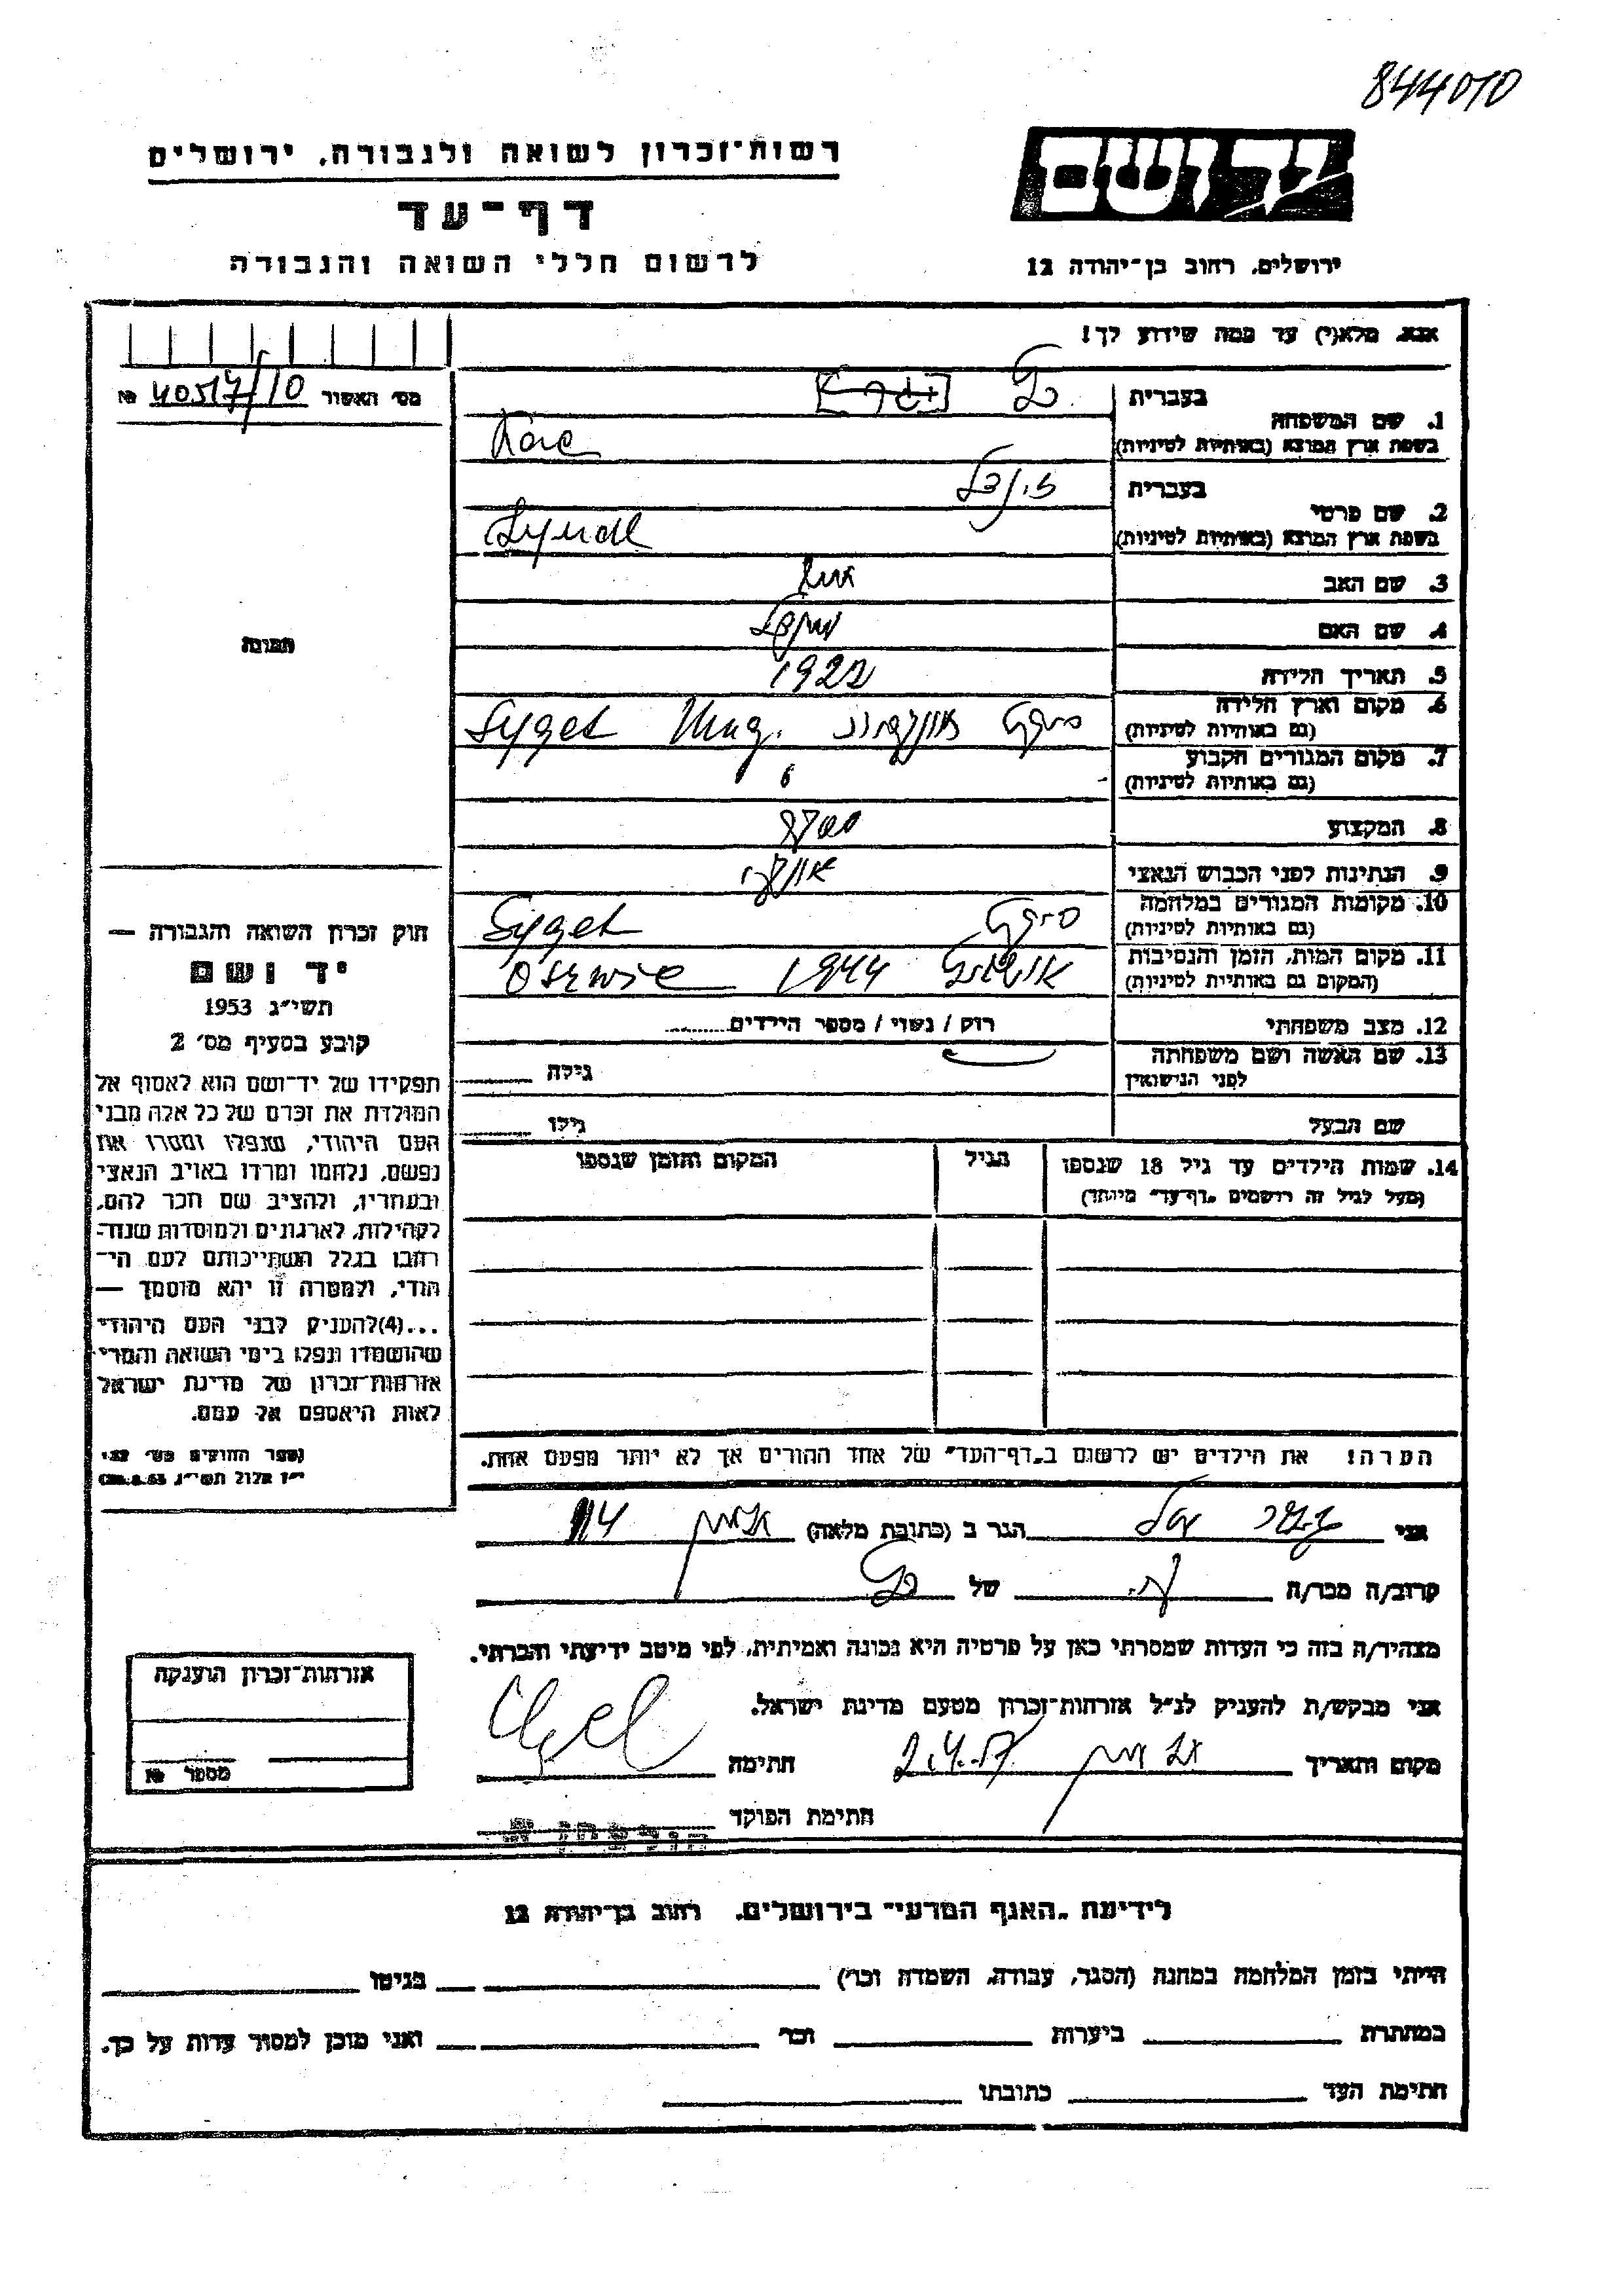 844010
יד ושם
רשות־זכרון לשואה ולגבורה, ירושלים
דף־עד
לרשום חללי השואה והגבורה
ירושלים, רחוב בן־יהודה 12
אנא, מלא(י) עד כמה שידוע לך!
מס׳ האשור 40517/10 №
תמונה
1. שם המשפחה
בעברית כץ
בשפת ארץ המוצא (באותיות לטיניות)
2. שם פרטי
בעברית
בשפת ארץ המוצא (באותיות לטיניות)
3. שם האב
4. שם האם
5. תאריך הלידה 1922
6. מקום וארץ הלידה
(גם באותיות לטיניות) סיגט Syget Ung.
7. מקום המגורים הקבוע
(גם באותיות לטיניות) "
8. המקצוע
9. הנתינות לפני הכבוש הנאצי
10. מקומות המגורים במלחמה
(גם באותיות לטיניות) סיגט Syget
11. מקום המות, הזמן והנסיבות
(המקום גם באותיית לטיניות) 1944
12. מצב משפחתי רוק / נשוי / מספר הילדים........
13. שם האשה ושם משפחתה
לפני הנישואין גילה
שם הבעל גילו
14. שמות הילדים עד גיל 18 שנספו
(מעל לגיל זה רושמים „דף־עד" מיוחד)
הגיל
המקום והזמן שנספו
הערה! את הילדים יש לרשום ב„דף־העד" של אחד ההורים אך לא יותר מפעם אחת.
חוק זכרון השואה והגבורה —
יד ושם
תשי״ג 1953
קובע בסעיף מס׳ 2
תפקידו של יד־ושם הוא לאסוף אל
המולדת את זכרם של כל אלה מבני
העם היהודי, שנפלו ומסרו את
נפשם, נלחמו ומרדו באויב הנאצי
ובעוזריו, ולהציב שם וזכר להם,
לקהילות, לארגונים ולמוסדות שנח־
רבו בגלל השתייכותם לעם הי־
הודי, ולמטרה זו יהא מוסמך —
...(4)להעניק לבני העם היהודי
שהושמדו ונפלו בימי השואה והמרי
אזרחות־זכרון של מדינת ישראל
לאות היאספם אל עמם.
(ספר החוקים מס׳ 132,
י״ז אלול תשי״ג 28.8.53)
אני הגר ב (כתובת מלאה)
קרוב/ה מכר/ה של כץ
מצהיר/ה בזה כי העדות שמסרתי כאן על פרטיה היא נכונה ואמיתית, לפי מיטב ידיעתי והכרתי.
אני מבקש/ת להעניק לנ״ל אזרחות־זכרון מטעם מדינת ישראל.
מקום ותאריך 2.4.57 חתימה
חתימת הפוקד
אזרחות־זכרון הוענקה
מספר №
לידיעת „האגף המדעי" בירושלים, רחוב בן־יהודה 12
הייתי בזמן המלחמה במחנה (הסגר, עבודה, השמדה וכו׳) בגיטו
במחתרת ביערות וכו׳ ואני מוכן למסור עדות על כך.
חתימת העד כתובתו